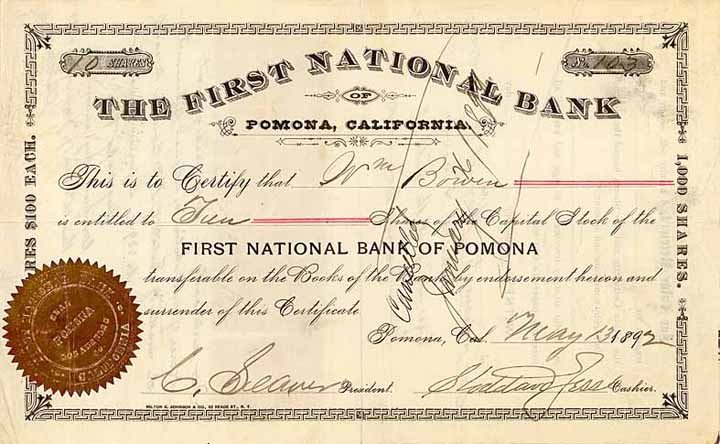 10 SHARES
No. 103
THE FIRST NATIONAL BANK
OF
POMONA, CALIFORNIA.
This is to Certify that Wm Bowen
is entitled to Ten Shares of the Capital Stock of the
FIRST NATIONAL BANK OF POMONA
transferable on the Books of the Bank by endorsement hereon and
surrender of this Certificate
Pomona, Cal. May 13 1892
C. Seaver President.
Stoddard Jess Cashier.
SHARES $100 EACH.
1,000 SHARES.
Cancelled
January
POMONA
CALIFORNIA
MILTON C. JOHNSON & CO., 52 READE ST., N. Y.